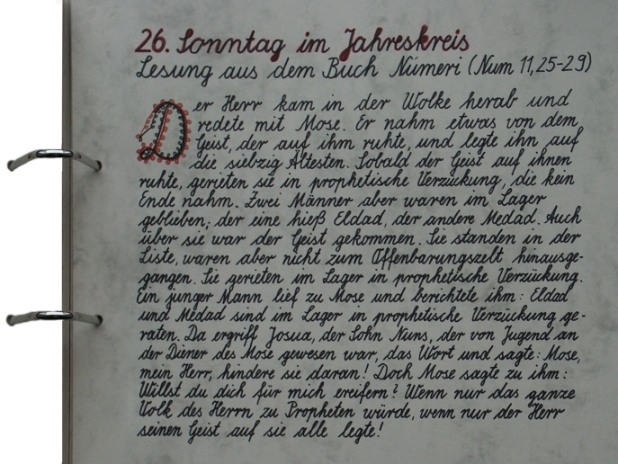 26. Sonntag im Jahreskreis
Lesung aus dem Buch Numeri (Num 11,25-29)
Der Herr kam in der Wolke herab und
redete mit Mose. Er nahm etwas von dem
Geist, der auf ihm ruhte, und legte ihn auf
die siebzig Ältesten. Sobald der Geist auf ihnen
ruhte, gerieten sie in prophetische Verzückung, die kein
Ende nahm. Zwei Männer aber waren im Lager
geblieben; der eine hieß Eldad, der andere Medad. Auch
über sie war der Geist gekommen. Sie standen in der
Liste, waren aber nicht zum Offenbarungszelt hinausge-
gangen. Sie gerieten im Lager in prophetische Verzückung.
Ein junger Mann lief zu Mose und berichtete ihm: Eldad
und Medad sind im Lager in prophetische Verzückung ge-
raten. Da ergriff Josua, der Sohn Nuns, der von Jugend an
der Diener des Mose gewesen war, das Wort und sagte: Mose,
mein Herr, hindere sie daran! Doch Mose sagte zu ihm:
Willst du dich für mich ereifern? Wenn nur das ganze
Volk des Herrn zu Propheten würde, wenn nur der Herr
seinen Geist auf sie alle legte!